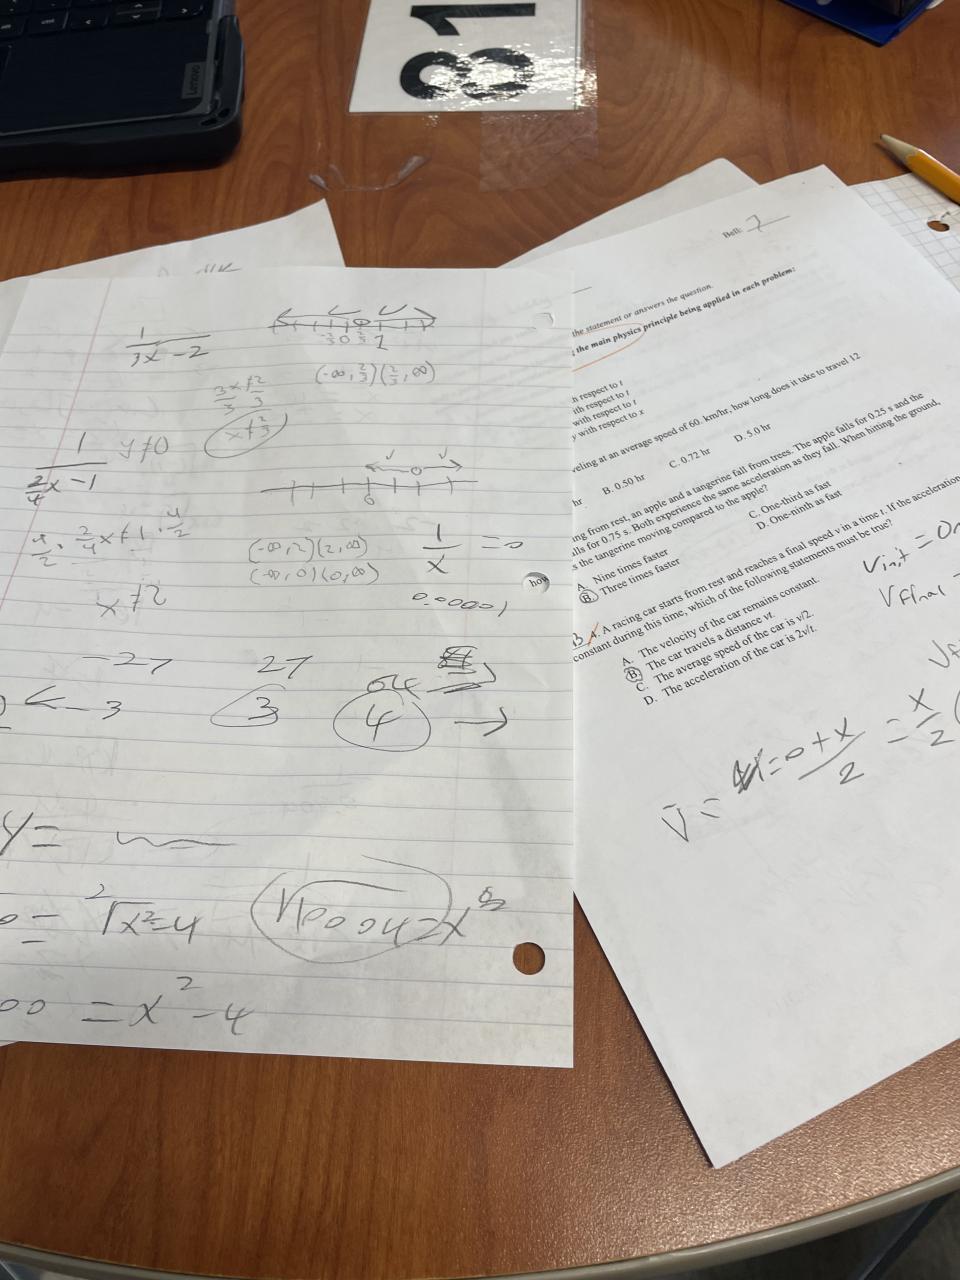 81
Bell: 7
the statement or answers the question.
the main physics principle being applied in each problem:
h respect to t
ith respect to t
with respect to t
y with respect to x
veling at an average speed of 60. km/hr, how long does it take to travel 12
hr B. 0.50 hr C. 0.72 hr D. 5.0 hr
ing from rest, an apple and a tangerine fall from trees. The apple falls for 0.25 s and the
lls for 0.75 s. Both experience the same acceleration as they fall. When hitting the ground,
s the tangerine moving compared to the apple?
A. Nine times faster C. One-third as fast
B. Three times faster D. One-ninth as fast
B 4. A racing car starts from rest and reaches a final speed v in a time t. If the acceleration
constant during this time, which of the following statements must be true?
A. The velocity of the car remains constant.
B. The car travels a distance vt.
C. The average speed of the car is v/2.
D. The acceleration of the car is 2v/t.
Vinit = 0
Vfinal
V̄ = = 0 + x / 2 = x/2
how
1/(3x - 2)
-2/3 0 2/3 1
(-∞, 2/3)(2/3, ∞)
3x/3 ≠ 2/3
x ≠ 2/3
1/(2/4x - 1) y≠0
0
4/2 · 2/4 x ≠ 1 · 4/2
(-∞, 2)(2, ∞)
(-∞, 0)(0, ∞)
1/x = 0
0.00001
x ≠ 2
-27 27 64
-3 3 4
y =
= ²√x²-4 √10004 = x
00 = x² - 4